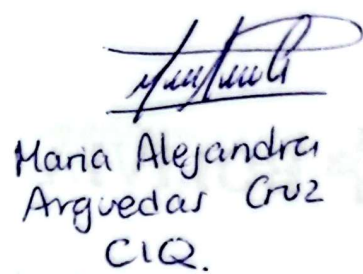 Maria Alejandra
Arguedas Cruz
CIQ.